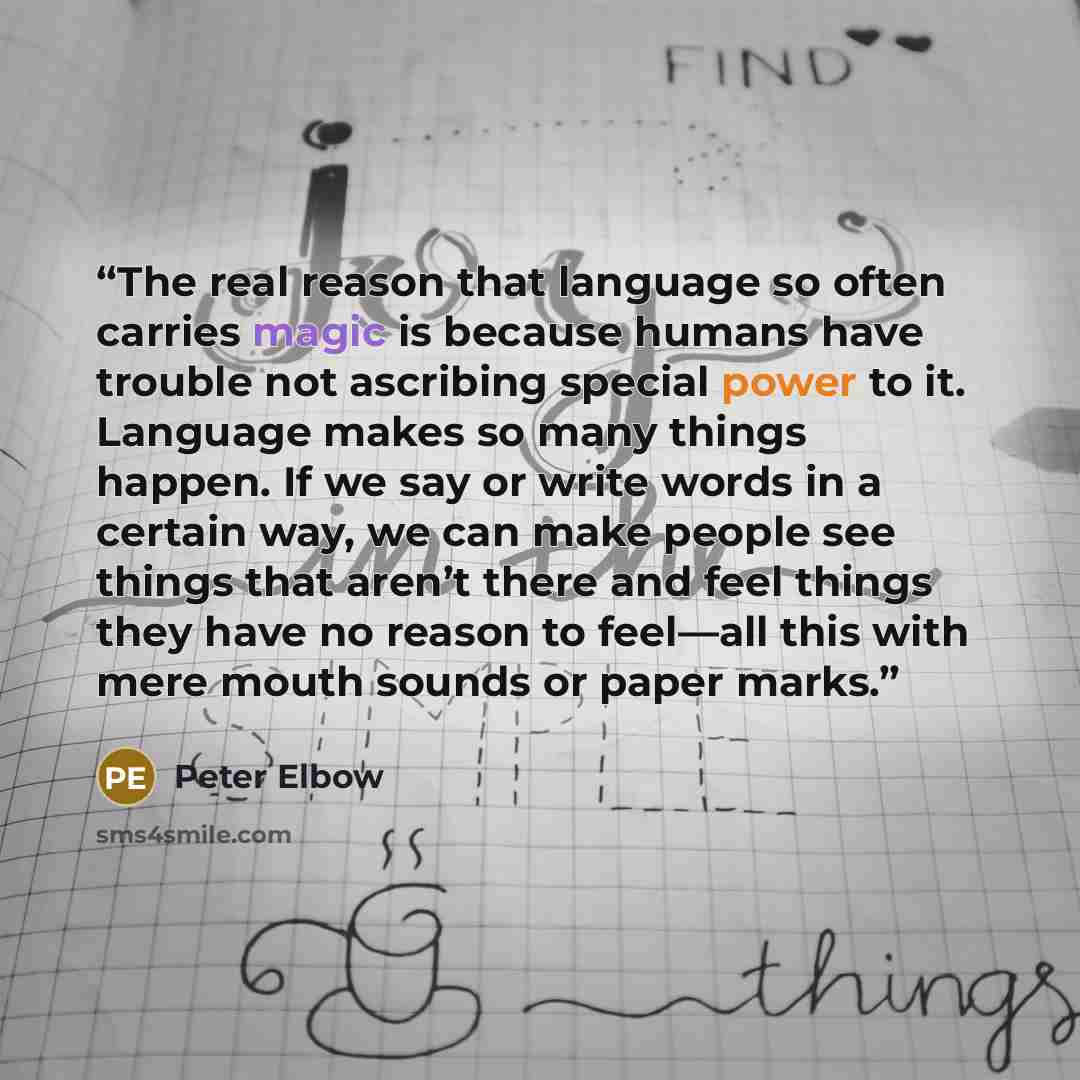 FIND
joy
“The real reason that language so often
carries magic is because humans have
trouble not ascribing special power to it.
Language makes so many things
happen. If we say or write words in a
certain way, we can make people see
things that aren’t there and feel things
they have no reason to feel—all this with
mere mouth sounds or paper marks.”
in the
SIMPLE
PE Peter Elbow
sms4smile.com
things